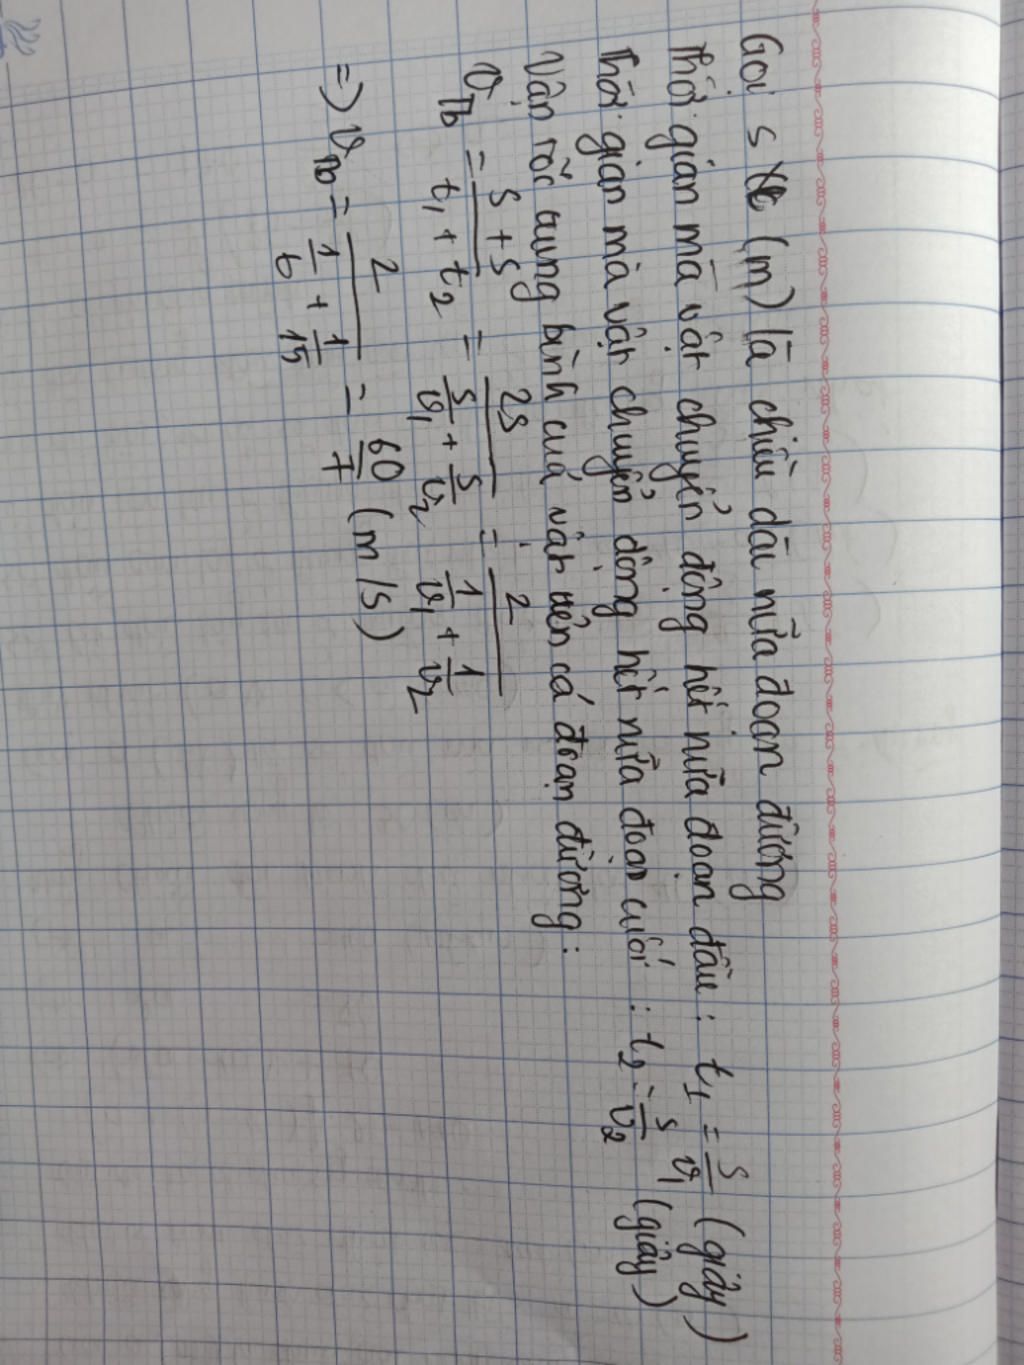 Gọi s (m) là chiều dài nửa đoạn đường
Thời gian mà vật chuyển động hết nửa đoạn đầu : t₁ = s/v₁ (giây)
Thời gian mà vật chuyển động hết nửa đoạn cuối : t₂ = s/v₂ (giây)
Vận tốc trung bình của vật trên cả đoạn đường :
v_tb = (s + s)/(t₁ + t₂) = 2s/(s/v₁ + s/v₂) = 2/(1/v₁ + 1/v₂)
=> v_tb = 2/(1/6 + 1/15) = 60/7 (m/s)